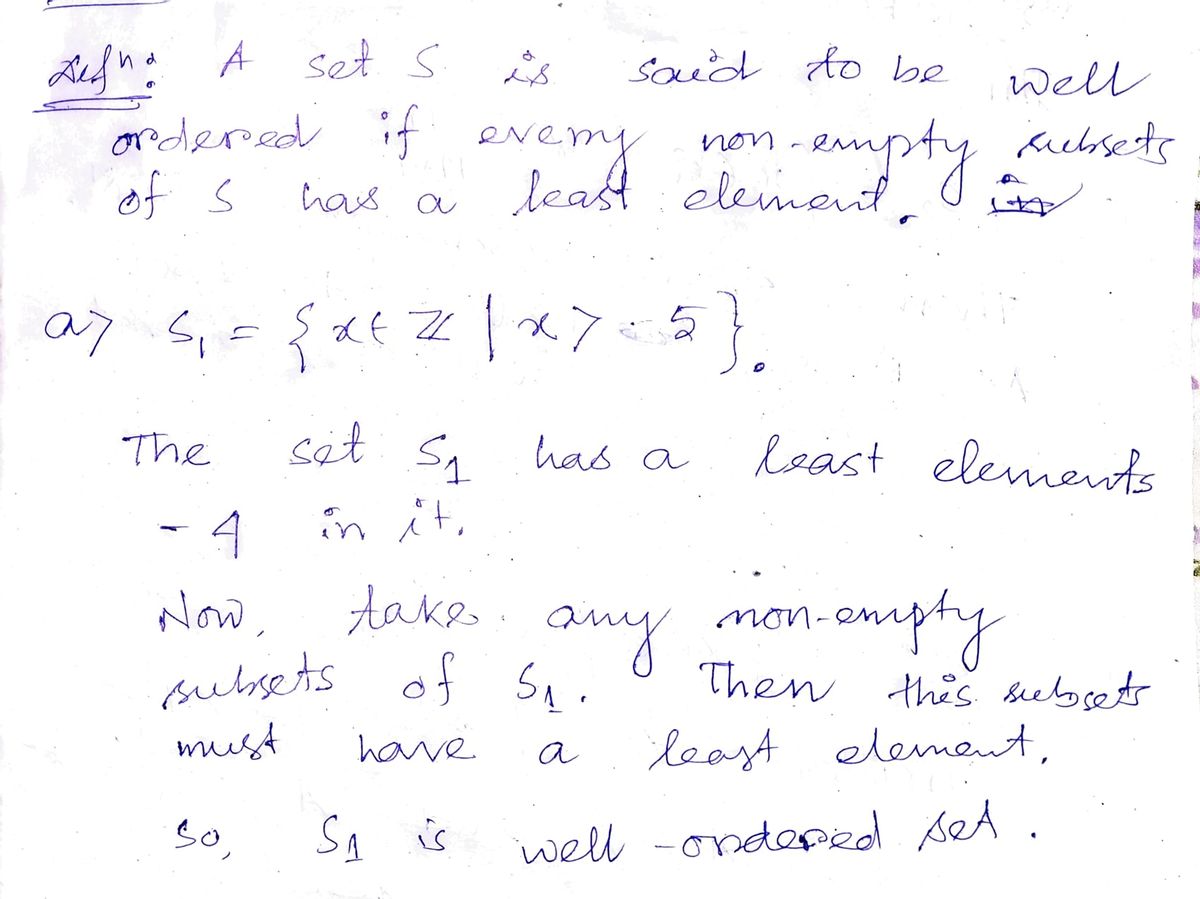 Defn: A set S is said to be well
ordered if every non-empty subsets
of S has a least element.
a> S₁ = {x ∈ ℤ | x > -5}.
The set S₁ has a least elements
-4 in it.
Now, take any non-empty
subsets of S₁. Then this subsets
must have a least element.
So, S₁ is well-ordered set.